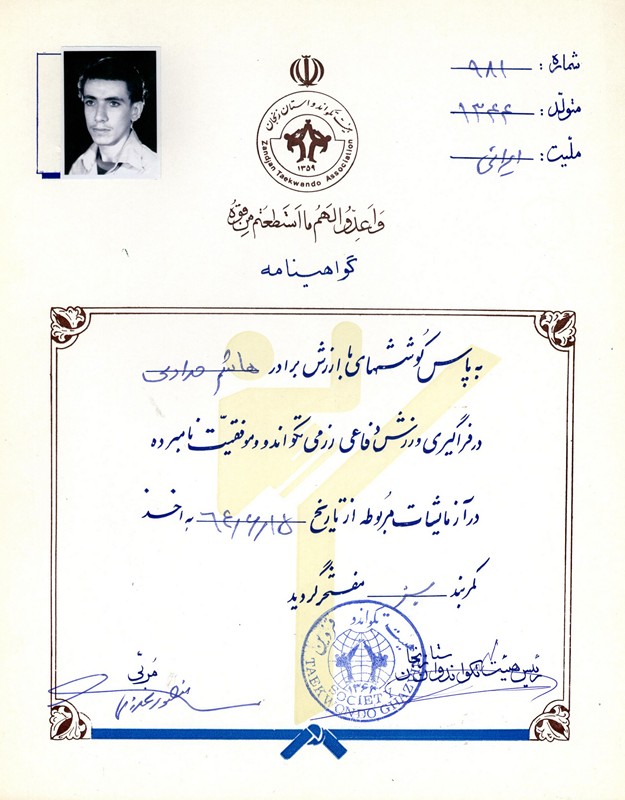 شماره: ۹۸۱
متولد: ۱۳۴۴
ملیت: ایرانی
هیئت تکواندو استان زنجان
۱۳۵۹
Zandjan Taekwondo Association
وَاَعِدّوُالَهُم مااَستَطَعتُم مِن قُوَّهُ
گواهینامه
به پاس کوششهای باارزش برادر هاشم
در فراگیری ورزش دفاعی رزمی تکواندو و موفقیّت نامبرده
در آزمایشات مربوطه از تاریخ ۶۴/۶/۱۵ به اخذ
کمربند سبز مفتخر گردید
مربّی
رئیس هیئت تکواندو استان
هیئت تکواندو قزوین
TAEKWONDO
SOCIETY